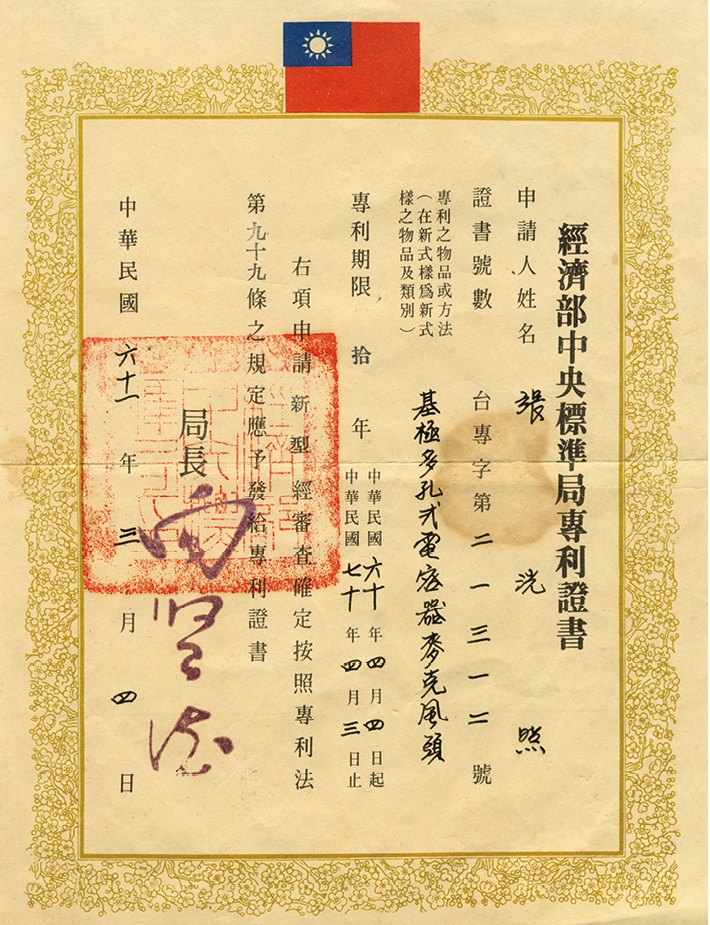 經濟部中央標準局專利證書
申請人姓名 張 照
證書號數 台專字第二一三一二號
專利之物品或方法
(在新式樣為新式
樣之物品及類別)
基極多孔式電容器麥克風頭
專利期限 拾年
中華民國六十年四月四日起
中華民國七十年四月三日止
右項申請新型經審查確定按照專利法
第九十九條之規定應予發給專利證書
局長 向賢德
中華民國六十一年三月四日